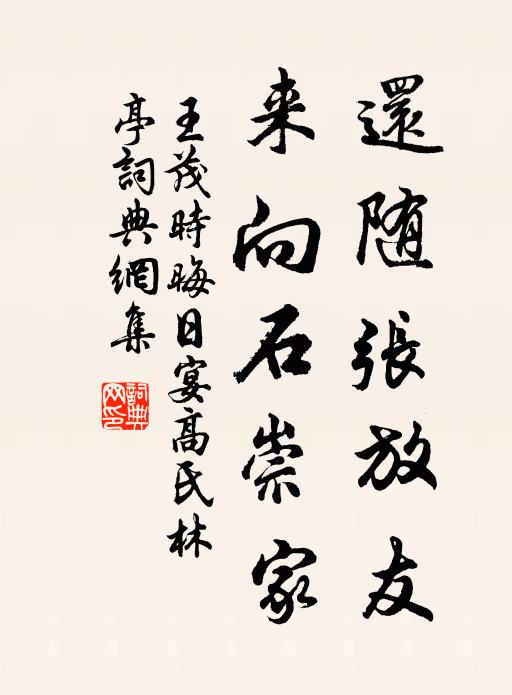 還随張放友
来向石崇家
王茂時晦日宴高氏林
亭詞典網集
詞典網印